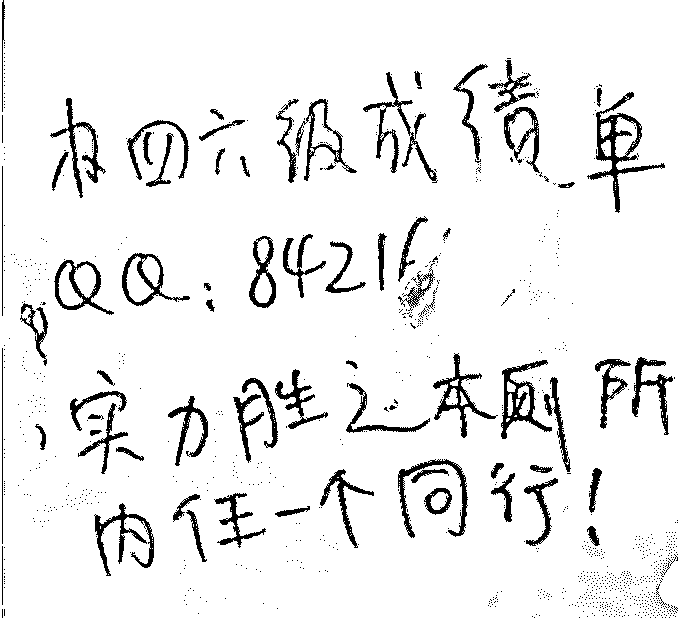 办四六级成绩单
QQ:8421
实力胜过本厕所
内任一个同行!